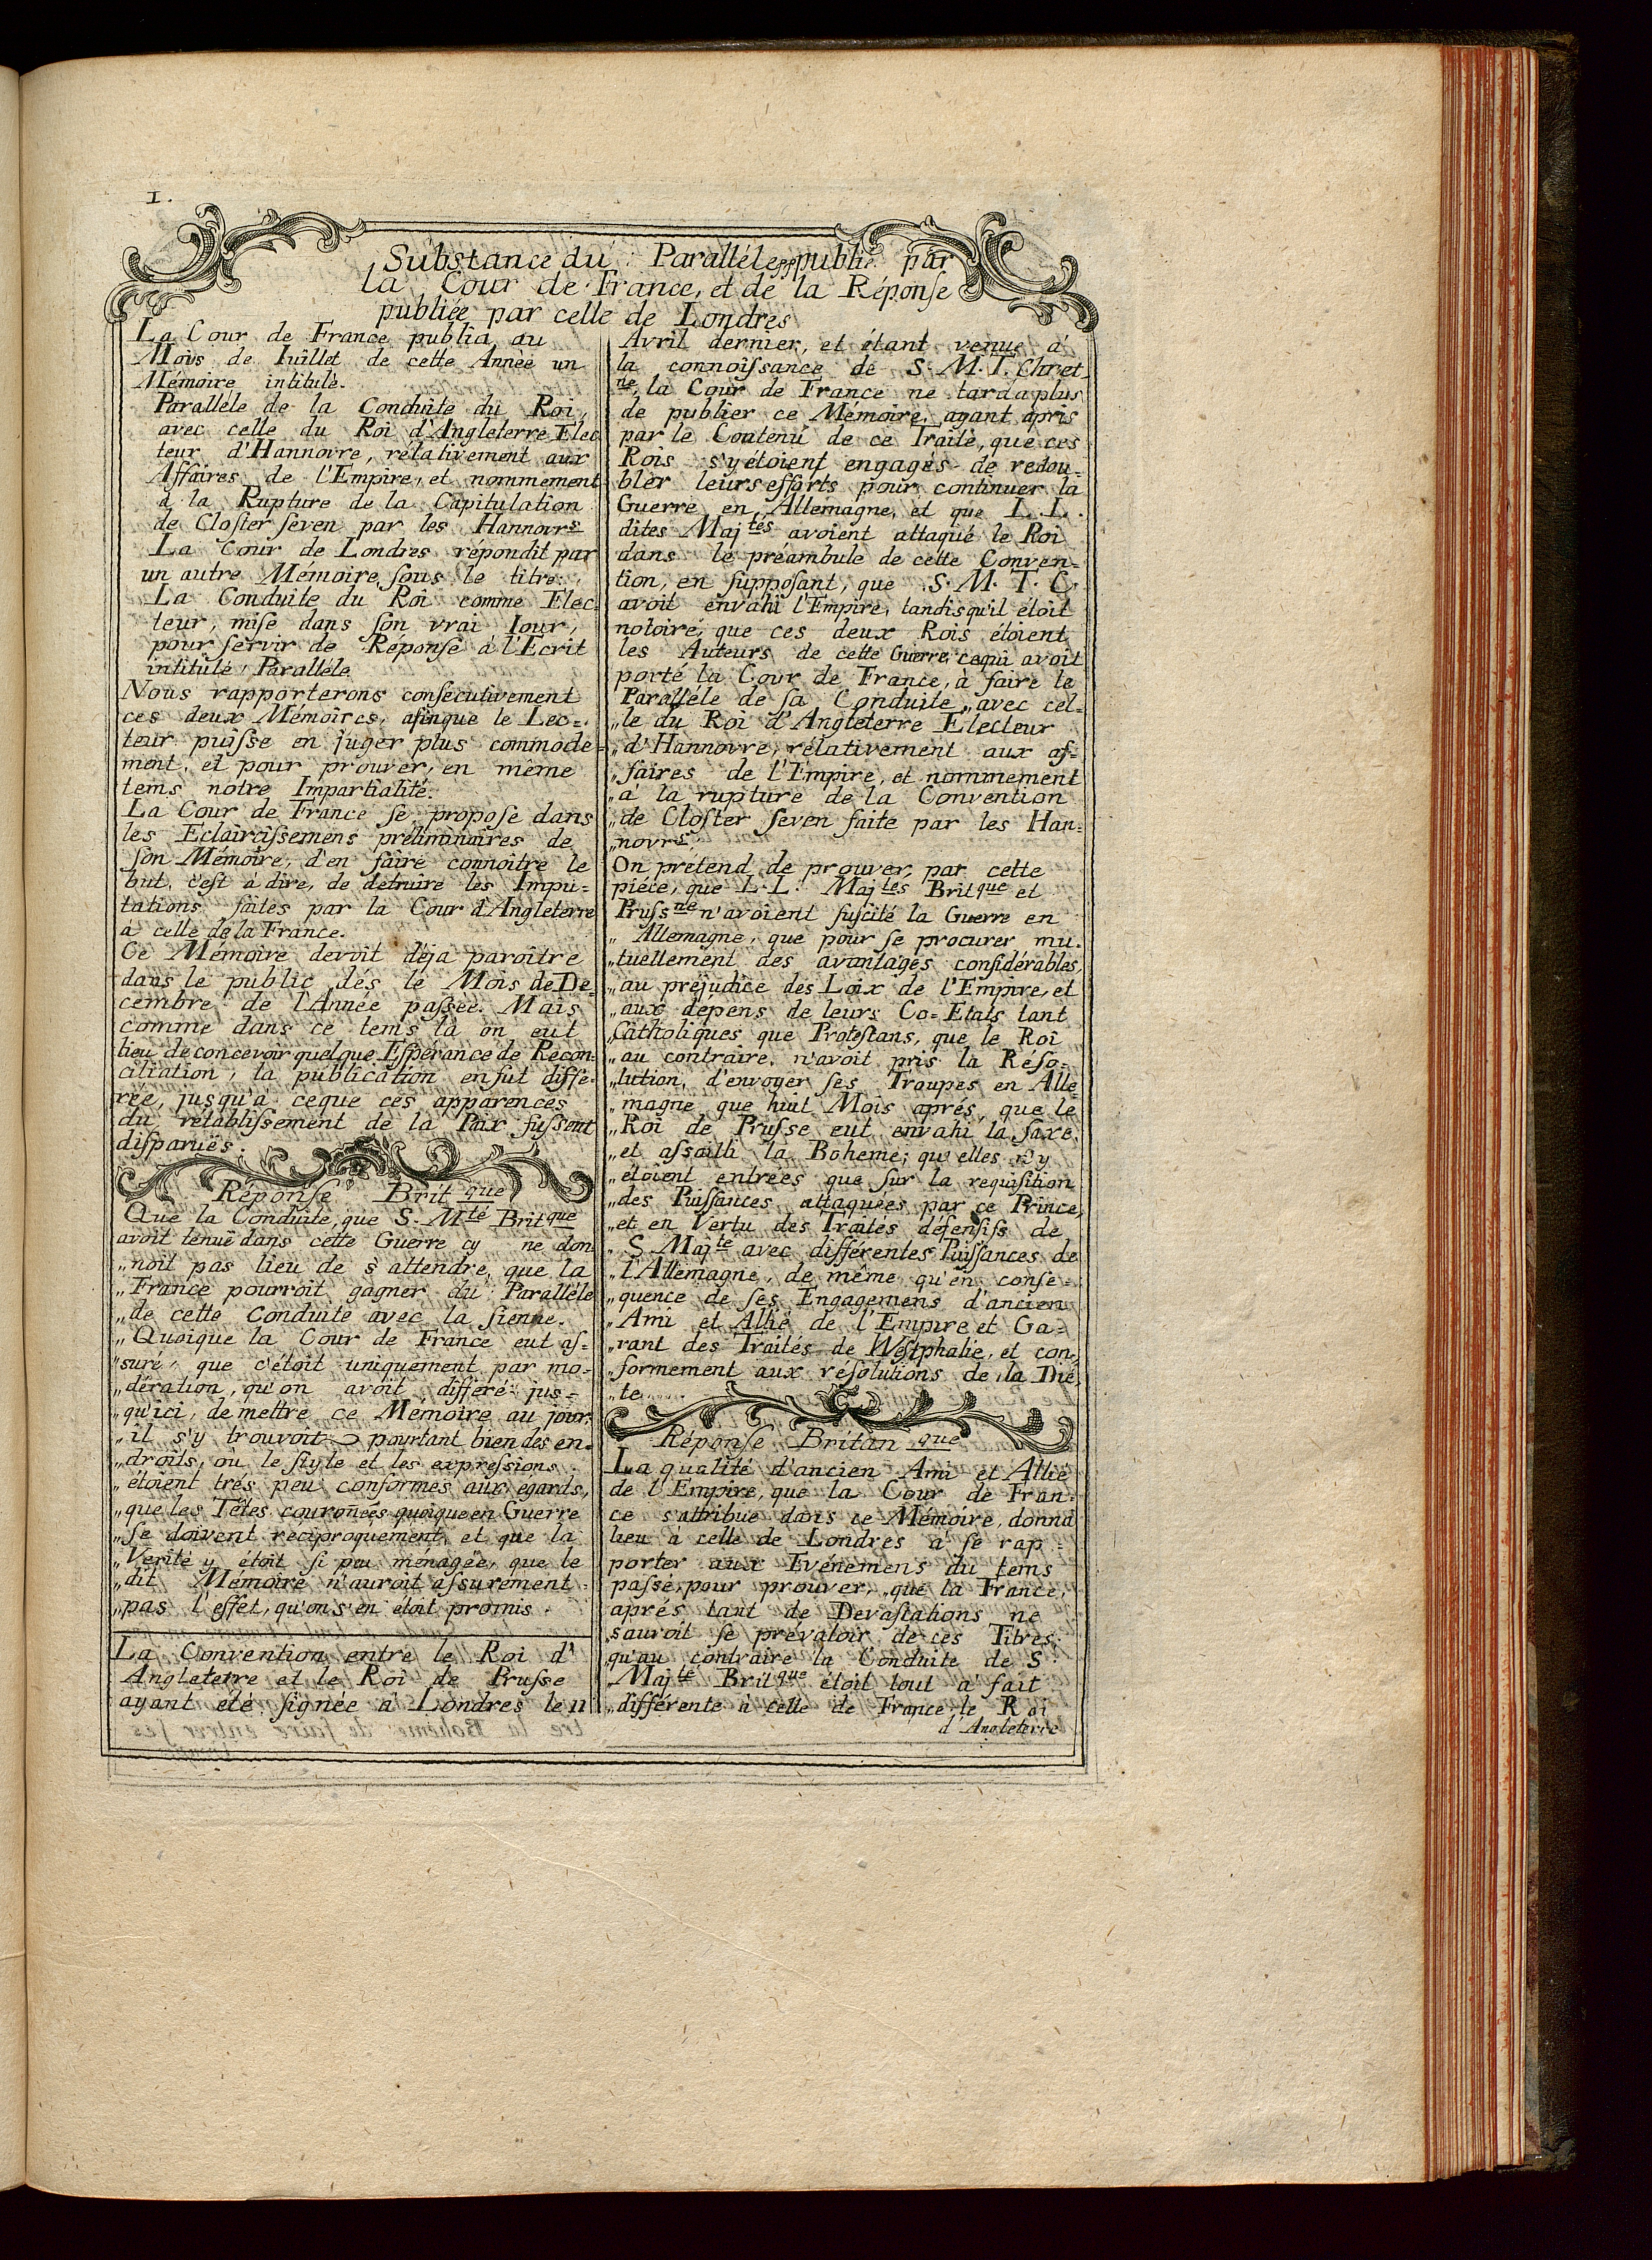 1.
Substance du Paralléle publié par
la Cour de France, et de la Réponſe
publiée par celle de Londres
La Cour de France publia au
Mois de Iuillet de cette Année un
Mémoire intitulé.
Paralléle de la Conduite du Roi,
avec celle du Roi d'Angleterre Elec
teur d'Hannovre, rélativement aux
Affaires de l'Empire, et nommement
à la Rupture de la Capitulation
de Cloſter ſeven par les Hannovrs
La Cour de Londres répondit par
un autre Mémoire ſous le titre:
La Conduite du Roi comme Elec
teur, miſe dans ſon vrai Iour,
pour ſervir de Réponſe à l'Ecrit
intitulé Paralléle
Nous rapporterons conſecutivement
ces deux Mémoires, afinque le Lec=
teur puiſse en juger plus commode=
ment, et pour prouver, en même
tems notre Impartialité.
La Cour de France ſe propoſe dans
les Eclairciſsemens préliminaires de
ſon Mémoire, d'en faire connoître le
but, c'eſt à dire, de detruire les Impu=
tations faites par la Cour d'Angleterre
a celle de la France.
Ce Mémoire devoit déja paroître
dans le public dés le Mois de De=
cembre de l'Année paſsée. Mais
comme dans ce tems là on eut
lieu de concevoir quelque Eſpérance de Recon=
ciliation, la publication en fut diffe=
rée, jusqu'à ceque ces apparences
du rétabliſsement de la Paix fuſsent
diſparuës.
Réponſe Britque
Que la Conduite, que S. Mté Britque
avoit tenuë dans cette Guerre cy ne don=
„noit pas lieu de s'attendre, que la
„France pourroit gagner du Paralléle
„de cette Conduite avec la ſienne.
„Quoique la Cour de France eut aſ=
„suré, que c'étoit uniquement par mo=
„dération, qu'on avoit différé jus=
„qu'ici, de mettre ce Mémoire au jour,
„il s'y trouvoit pourtant bien des en=
„droits, où le ſtyle et les expreſsions
„étoient trés peu conformes aux egards,
„que les Têtes couroñées quoique en Guerre
„ſe doivent reciproquement, et que la
„Verité y étoit ſi peu ménagée, que le
„dit Mémoire n'auroit aſsurement
„pas l'effet, qu'on s'en étoit promis.
La Convention entre le Roi d'
Angleterre et le Roi de Pruſse
ayant eté ſignée à Londres le 11
Avril dernier, et étant venue à
la connoiſsance de S. M. T. Chrét
ne, la Cour de France ne tarda plus
de publier ce Mémoire, ayant apris
par le Contenu de ce Traité, que ces
Rois s'y étoient engagés de redou=
bler leurs efforts pour continuer la
Guerre en Allemagne, et que L. L.
dites Majtés avoient attaqué le Roi
dans le préambule de cette Conven=
tion, en ſuppoſant, que S. M. T. C.
avoit envahi l'Empire, tandisqu'il étoit
notoire, que ces deux Rois étoient
les Auteurs de cette Guerre, cequi avoit
porté la Cour de France, à faire le
Paralléle de ſa Conduite „avec cel=
„le du Roi d'Angleterre Electeur
„d'Hannovre, rélativement aux af=
„faires de l'Empire, et nommement
„à la rupture de la Convention
„de Cloſter ſeven faite par les Han=
„novrs.
On prétend de prouver, par cette
piéce, que L. L. Majtes Britque et
Pruſsne n'avoient ſuſcité la Guerre en
„Allemagne, que pour ſe procurer mu=
„tuellement des avantages conſidérables,
„au prejudice des Loix de l'Empire, et
„aux dépens de leurs Co=Etats tant
„Catholiques que Proteſtans, que le Roi
„au contraire, n'avoit pris la Réſo=
„lution, d'envoyer ſes Troupes en Alle
„magne que huit Mois aprés, que le
„Roi de Pruſse eut envahi la ſaxe,
„et aſsailli la Boheme; qu'elles n'y
„étoient entrées que ſur la requiſition
„des Puiſsances attaquées par ce Prince,
„et en Vertu des Traités défenſifs de
„S Majte avec différentes Puiſsances de
„l'Allemagne, de même qu'en conſe=
„quence de ſes Engagemens d'ancien
„Ami et Allié de l'Empire et Ga=
„rant des Traités de Weſtphalie, et con=
„formement aux réſolutions de la Die
„te
Réponſe Britanque
La qualité d'ancien Ami et Allié
de l'Empire, que la Cour de Fran=
ce s'attribue dans ce Mémoire, donna
lieu à celle de Londres à ſe rap=
porter aux Evénemens du tems
paſsé, pour prouver, „que la France,
aprés tant de Devaſtations ne
„sauroit ſe prévaloir de ces Titres,
„qu'au contraire la Conduite de S.
„Majté Britque étoit tout à fait
„différente à celle de France le Roi
d'Angleterre